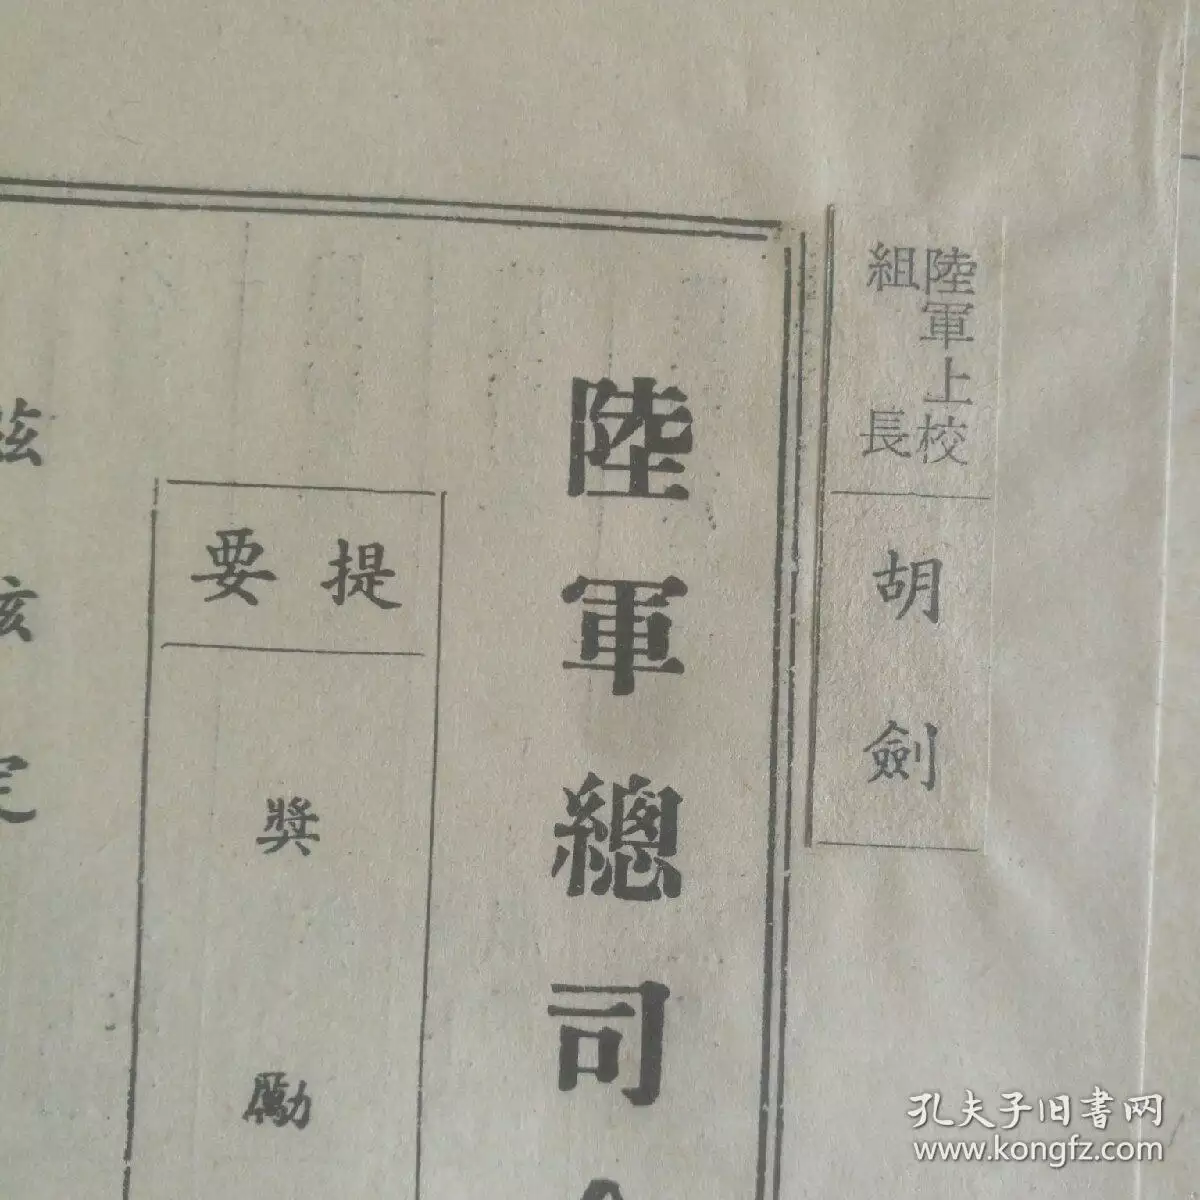 陸軍上校
組長
胡劍
陸軍總司
提要
獎勵
茲核定
孔夫子旧書网
www.kongfz.com